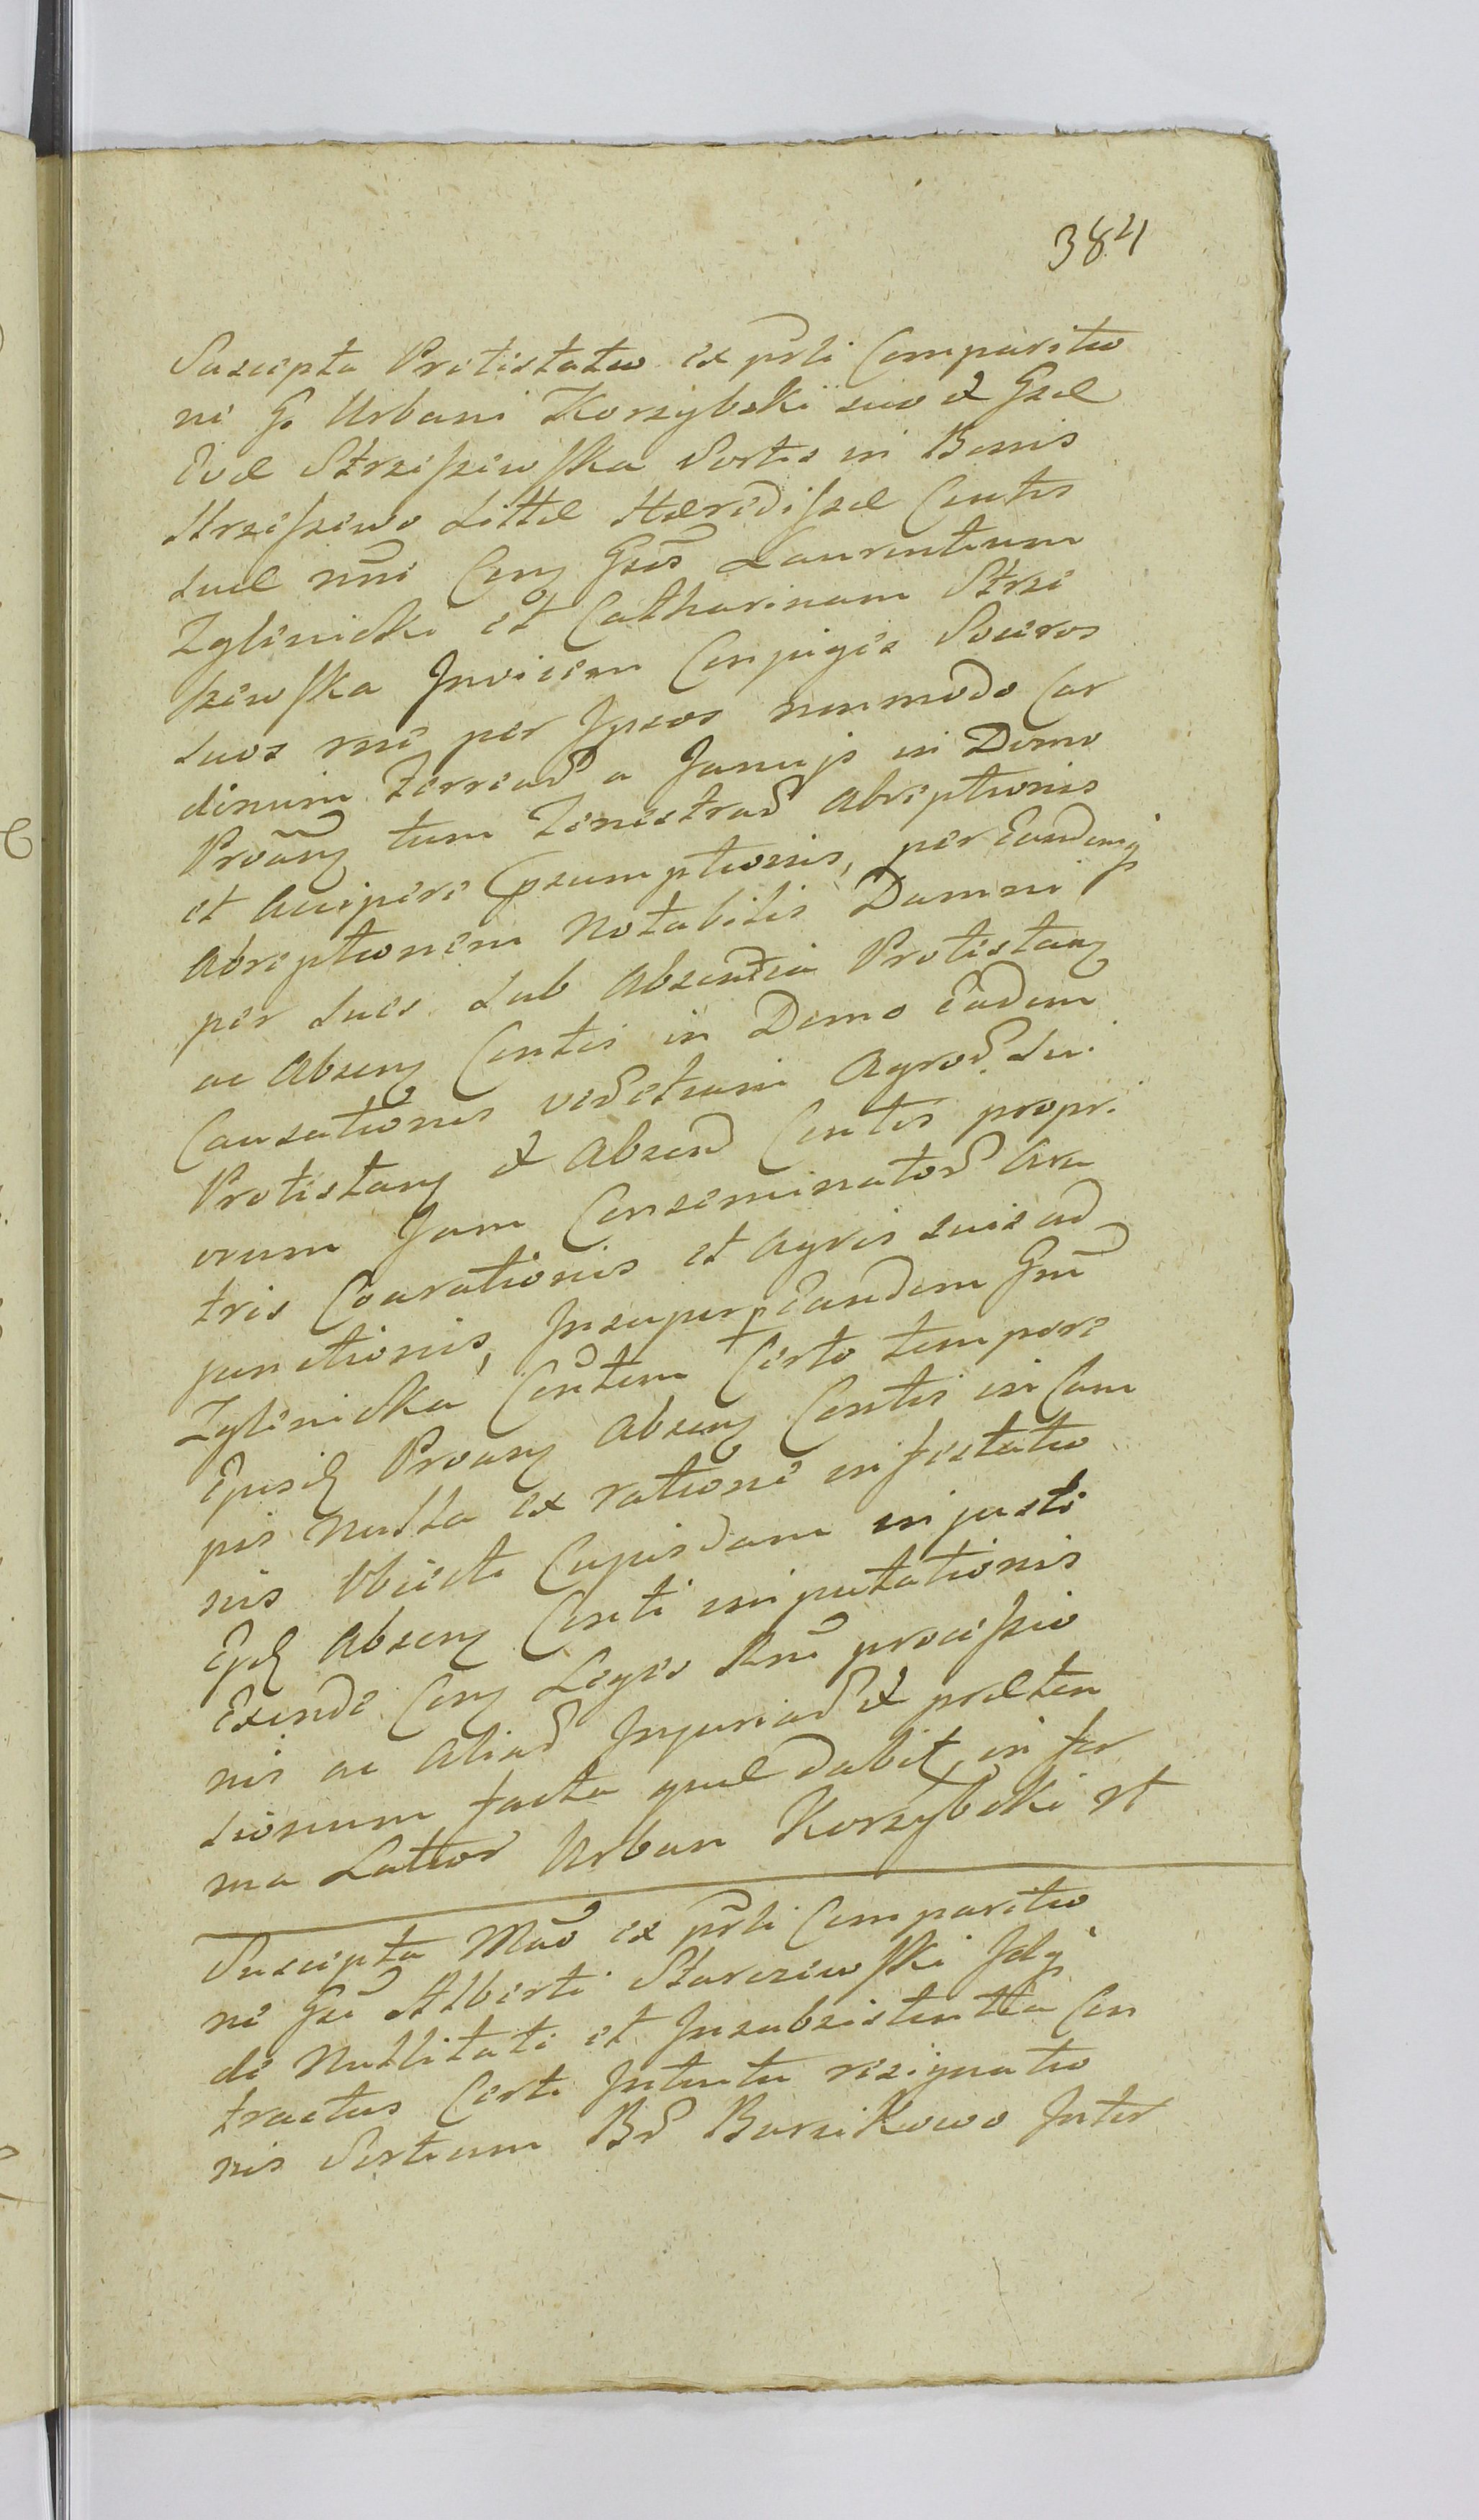 384
Suscepta Protestatio ex prli Comparitio
ne G. Urbani Korzybski suo et Gsæ
Evæ Strzeszewska Sortis in Bonis
Strzeszewo Littæ Hæredissæ Contis
suæ nne Cong Gsos Laurentium
Zglinicki et Catharinam Strze
szewska Invicem Conjuges Soceros
suos rne per Ipsos nonmodo Car
dinum Ferread a Januis in Domo
Proang tum Fenestrad abreptionis
et accipere psumptionis, per Eandemq
abreptionem Notabilis Damni
per sues sub absentia Protestang
ac abseng Contis in Domo Eadem
Causationis Agrod su
Protestang et absend Contis propri
orum Jam Conseminatod Ara
tris Coarationis et agris suis ad
junctionis, Insuper p Eandem Gnm
Zglinicka Contem Certo tempore
Ejusd Proang abseng Contis in Cam
pis Nulla ex ratione infestatio
nis Obiecti Cujusdam injusti
Ejd abseng Conti imputationis
Exinde Cong Leges Rni processio
nis ac aliad Injuriad et præten
sionum facta quæ dabit in for
ma Latiod Urban Korzybski st
Suscepta Mão ex prli Comparitio
ne Gsi Alberti Starczewski
de Nullitate et Insubsistentia Con
tractus Certi Intuitu resignatio
nis Sortium Bd Burzikowo Inter